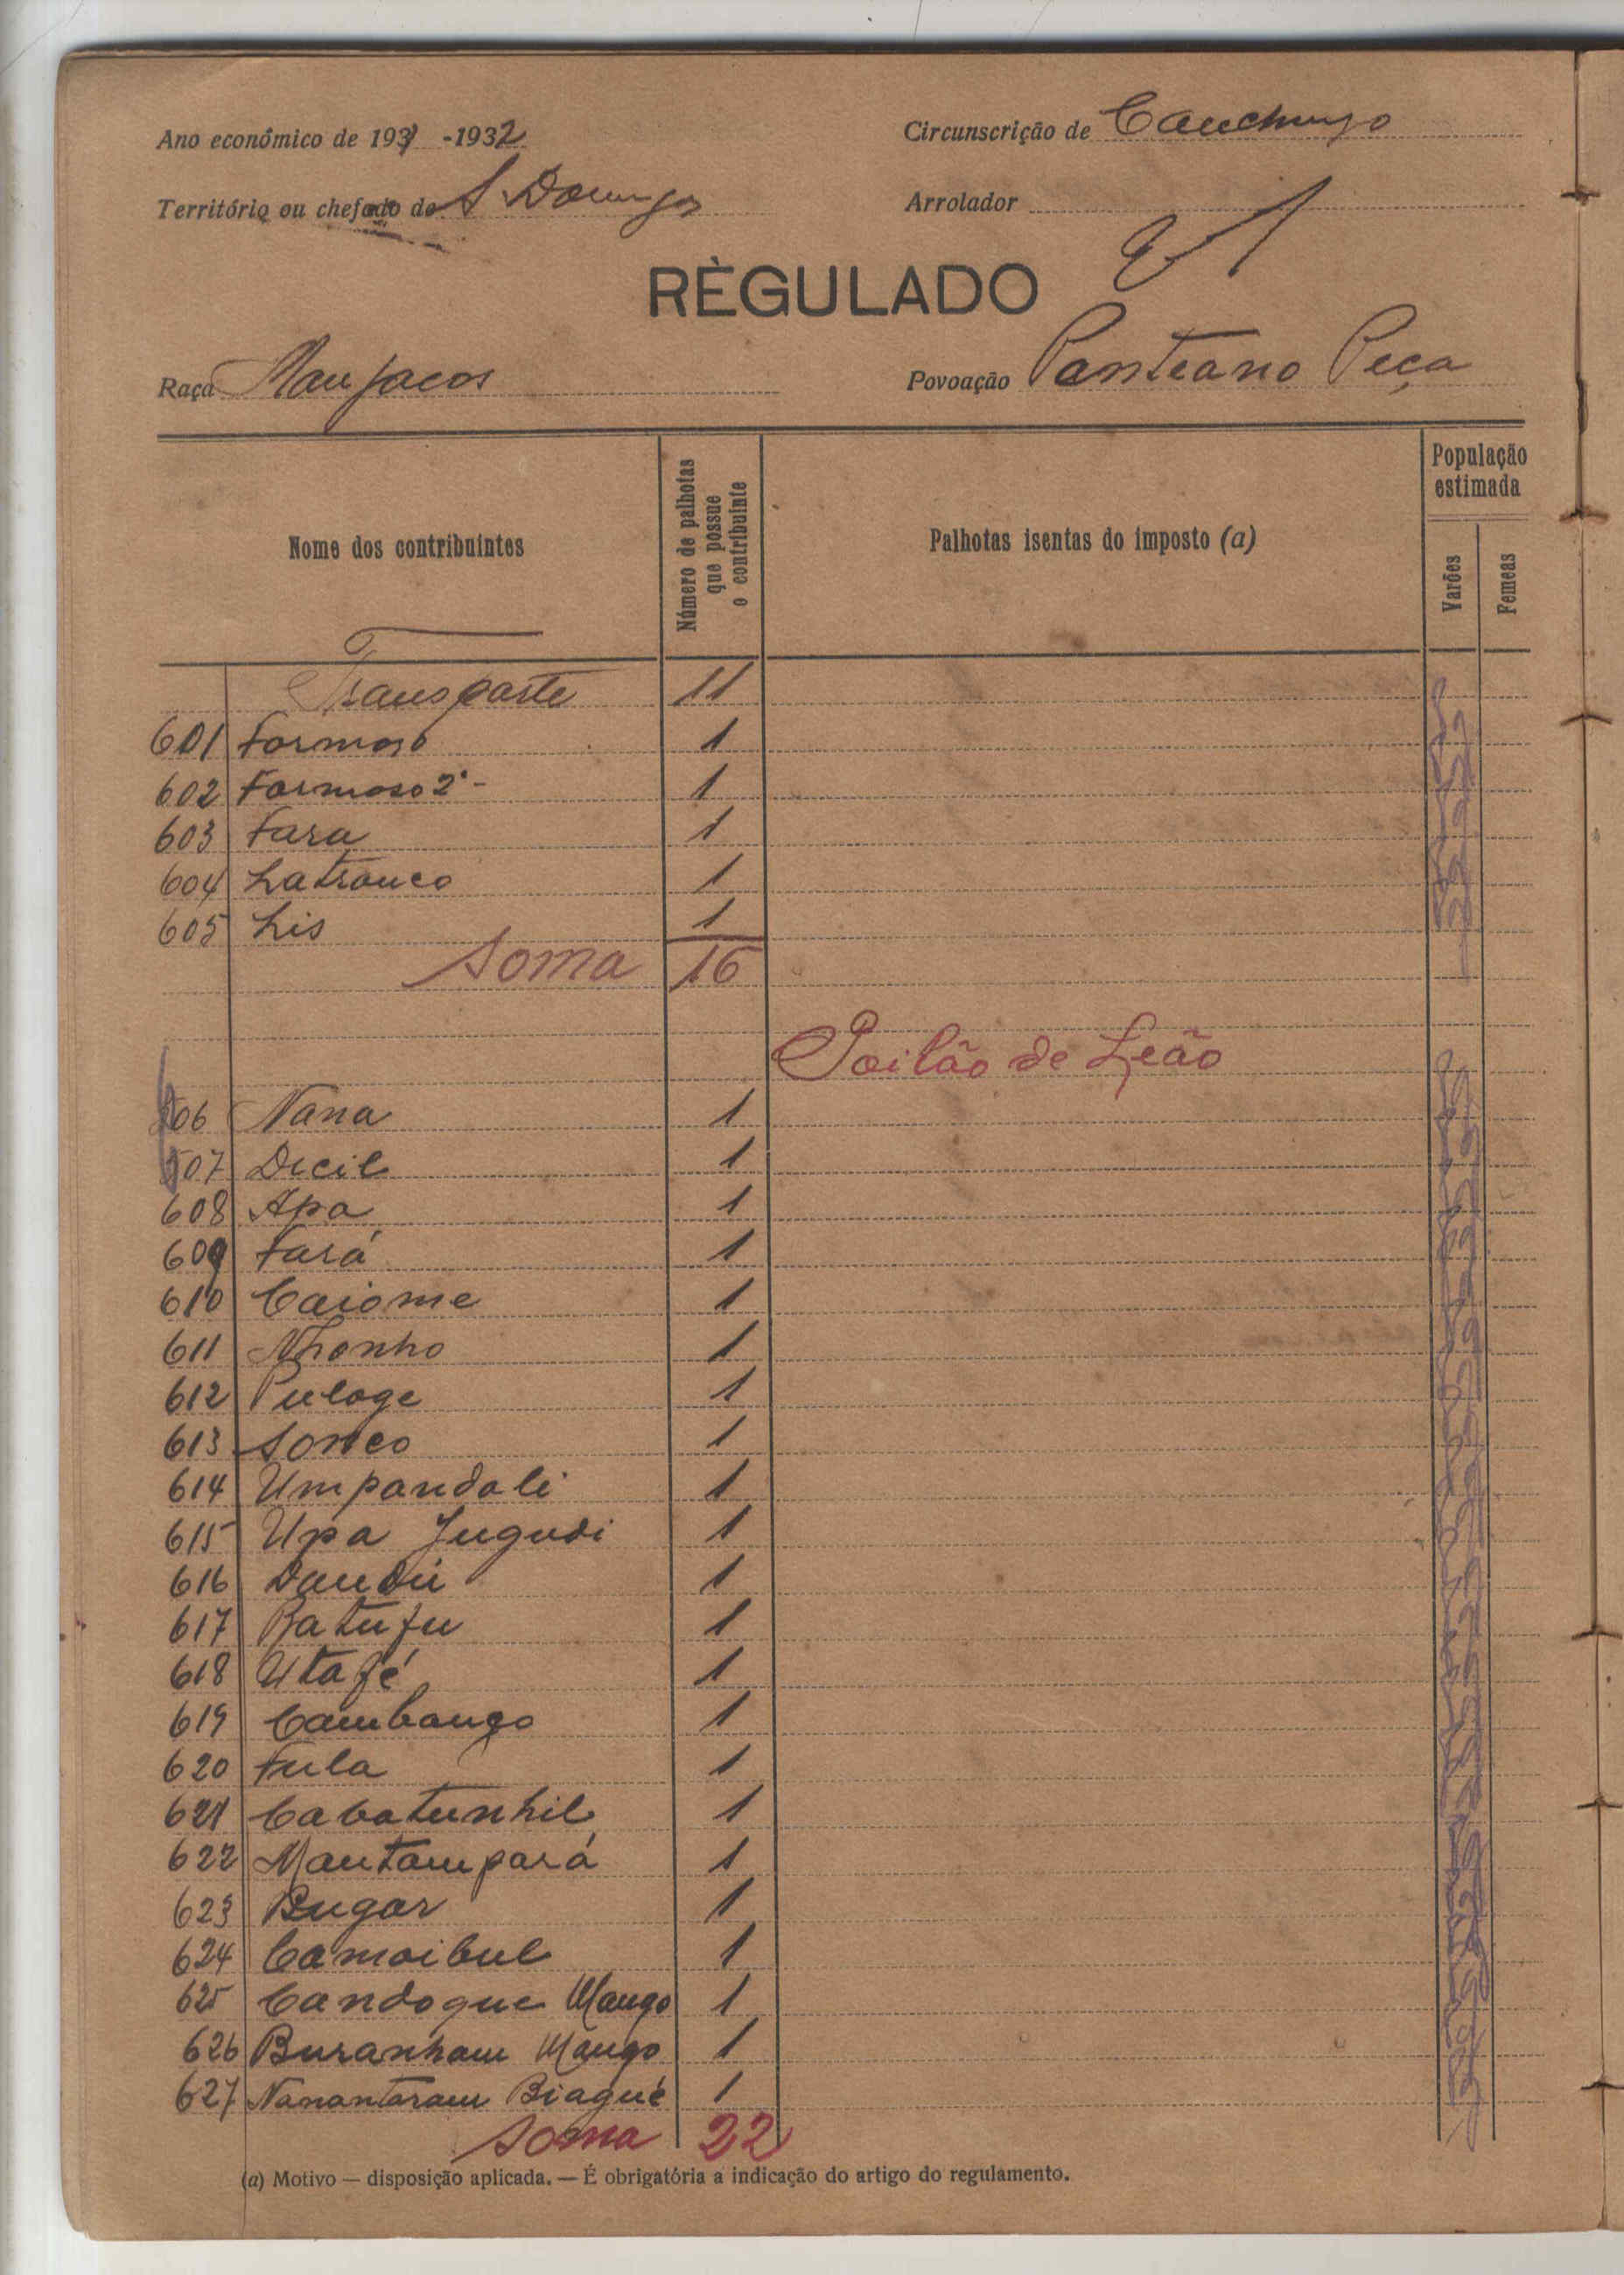 Ano económico de 1931 -1932 Circunscrição de Canchungo
Território ou chefado de S Domingos Arrolador
RÈGULADO
Raça Manjacos Povoação Panteano Peça
Nome dos contribuintes
Número de palhotas que possue o contribuinte
Palhotas isentas do imposto (a)
População estimada
Varões
Femeas
Transporte 11
601 Formoso 1
602 Formoso 2º- 1
603 Fara 1
604 Latranco 1
605 Lis 1
Soma 16
Poilão de Leão
606 Nana 1
607 Decil 1
608 Apa 1
609 Fará 1
610 Caiome 1
611 Nhonho 1
612 Puloge 1
613 Sonco 1
614 Umpandali 1
615 Upa Jugudi 1
616 Dandú 1
617 Batufu 1
618 Utafé 1
619 Cambango 1
620 Fula 1
621 Cabatunhil 1
622 Mantampará 1
623 Bugar 1
624 Camoibul 1
625 Candogue Mango 1
626 Buranham Mango 1
627 Nanantaram Biagué 1
Soma 22
(a) Motivo — disposição aplicada. — É obrigatória a indicação do artigo do regulamento.